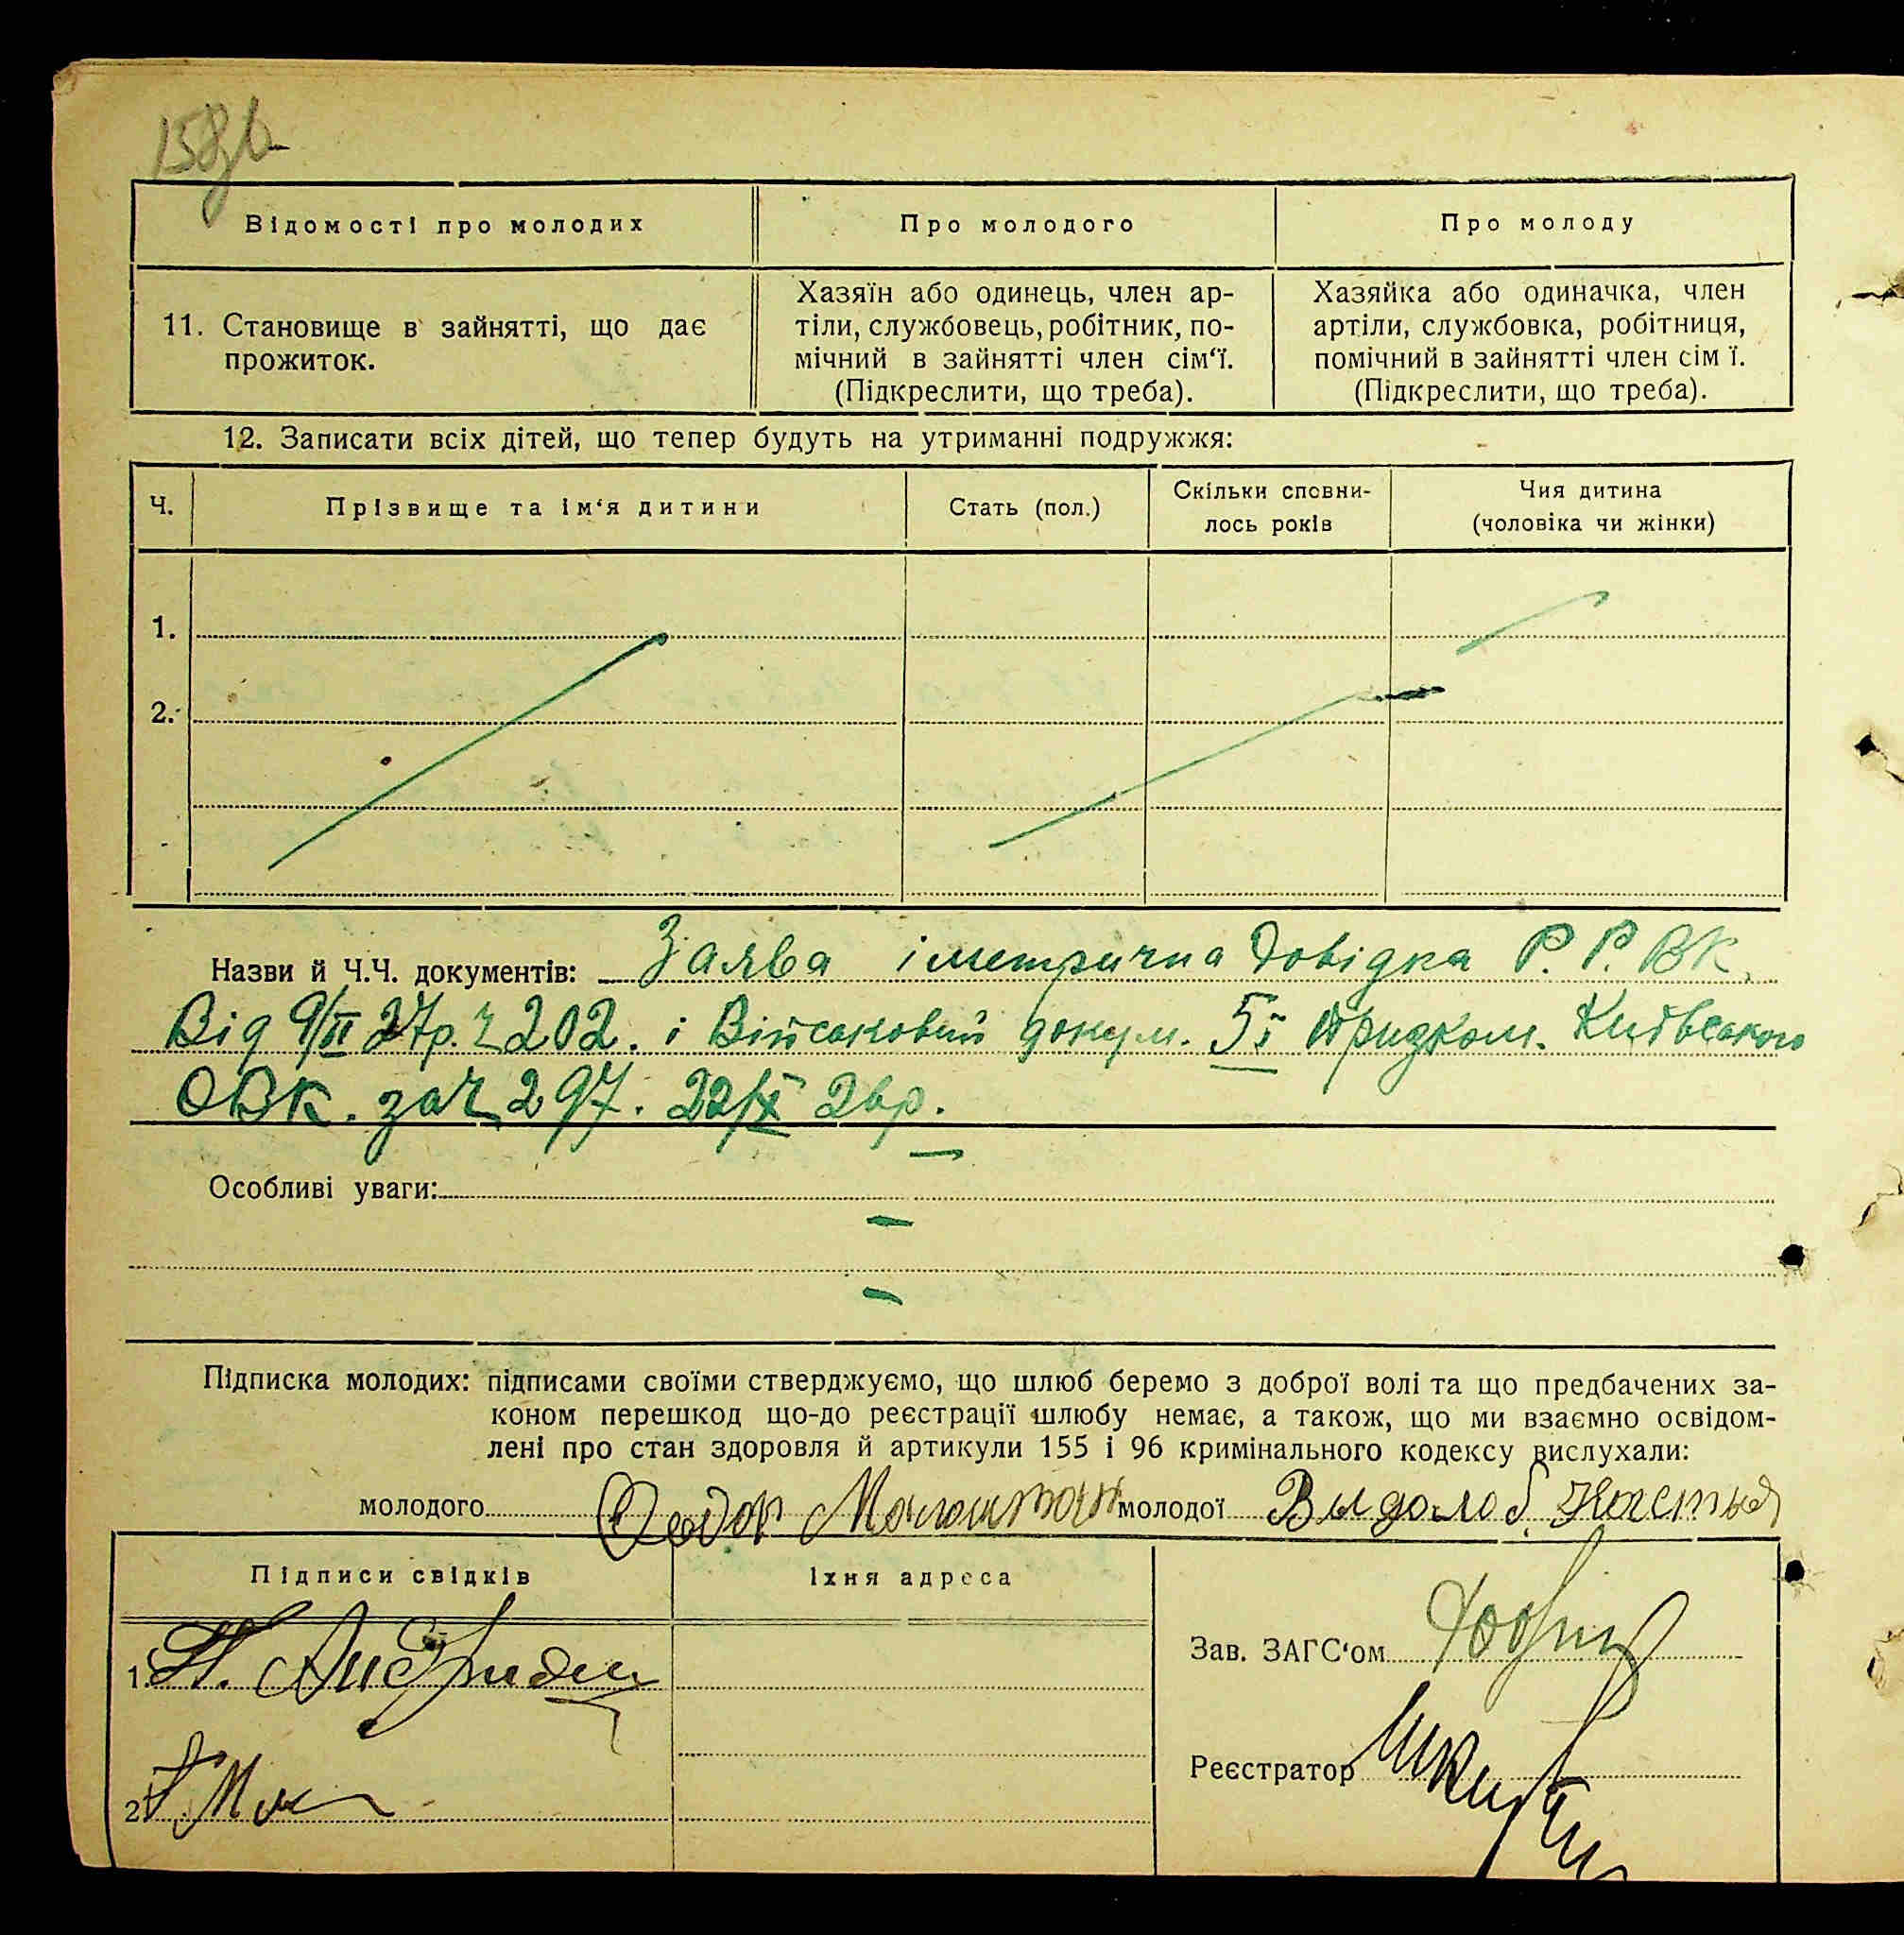 158
Відомості про молодих
Про молодого
Про молоду
11. Становище в зайнятті, що дає
прожиток.
Хазяїн або одинець, член ар-
тіли, службовець, робітник, по-
мічний в зайнятті член сім'ї.
(Підкреслити, що треба).
Хазяйка або одиначка, член
артіли, службовка, робітниця,
помічний в зайнятті член сім ї.
(Підкреслити, що треба).
12. Записати всіх дітей, що тепер будуть на утриманні подружжя:
Ч.
Прізвище та ім'я дитини
Стать (пол.)
Скільки сповни-
лось років
Чия дитина
(чоловіка чи жінки)
1.
2.
Назви й Ч.Ч. документів: Заява і метрична довідка Р. Р. ВК.
Від 9/II 27р. ч 202. і Військовий докум. 5ї Київського
ОВК. за ч. 297. 22/X 26р.
Особливі уваги:
Підписка молодих: підписами своїми стверджуємо, що шлюб беремо з доброї волі та що предбачених за-
коном перешкод що-до реєстрації шлюбу немає, а також, що ми взаємно освідом-
лені про стан здоровля й артикули 155 і 96 кримінального кодексу вислухали:
молодого Федор молодої Настья
Підписи свідків
Їхня адреса
1.
2.
Зав. ЗАГС'ом
Реєстратор